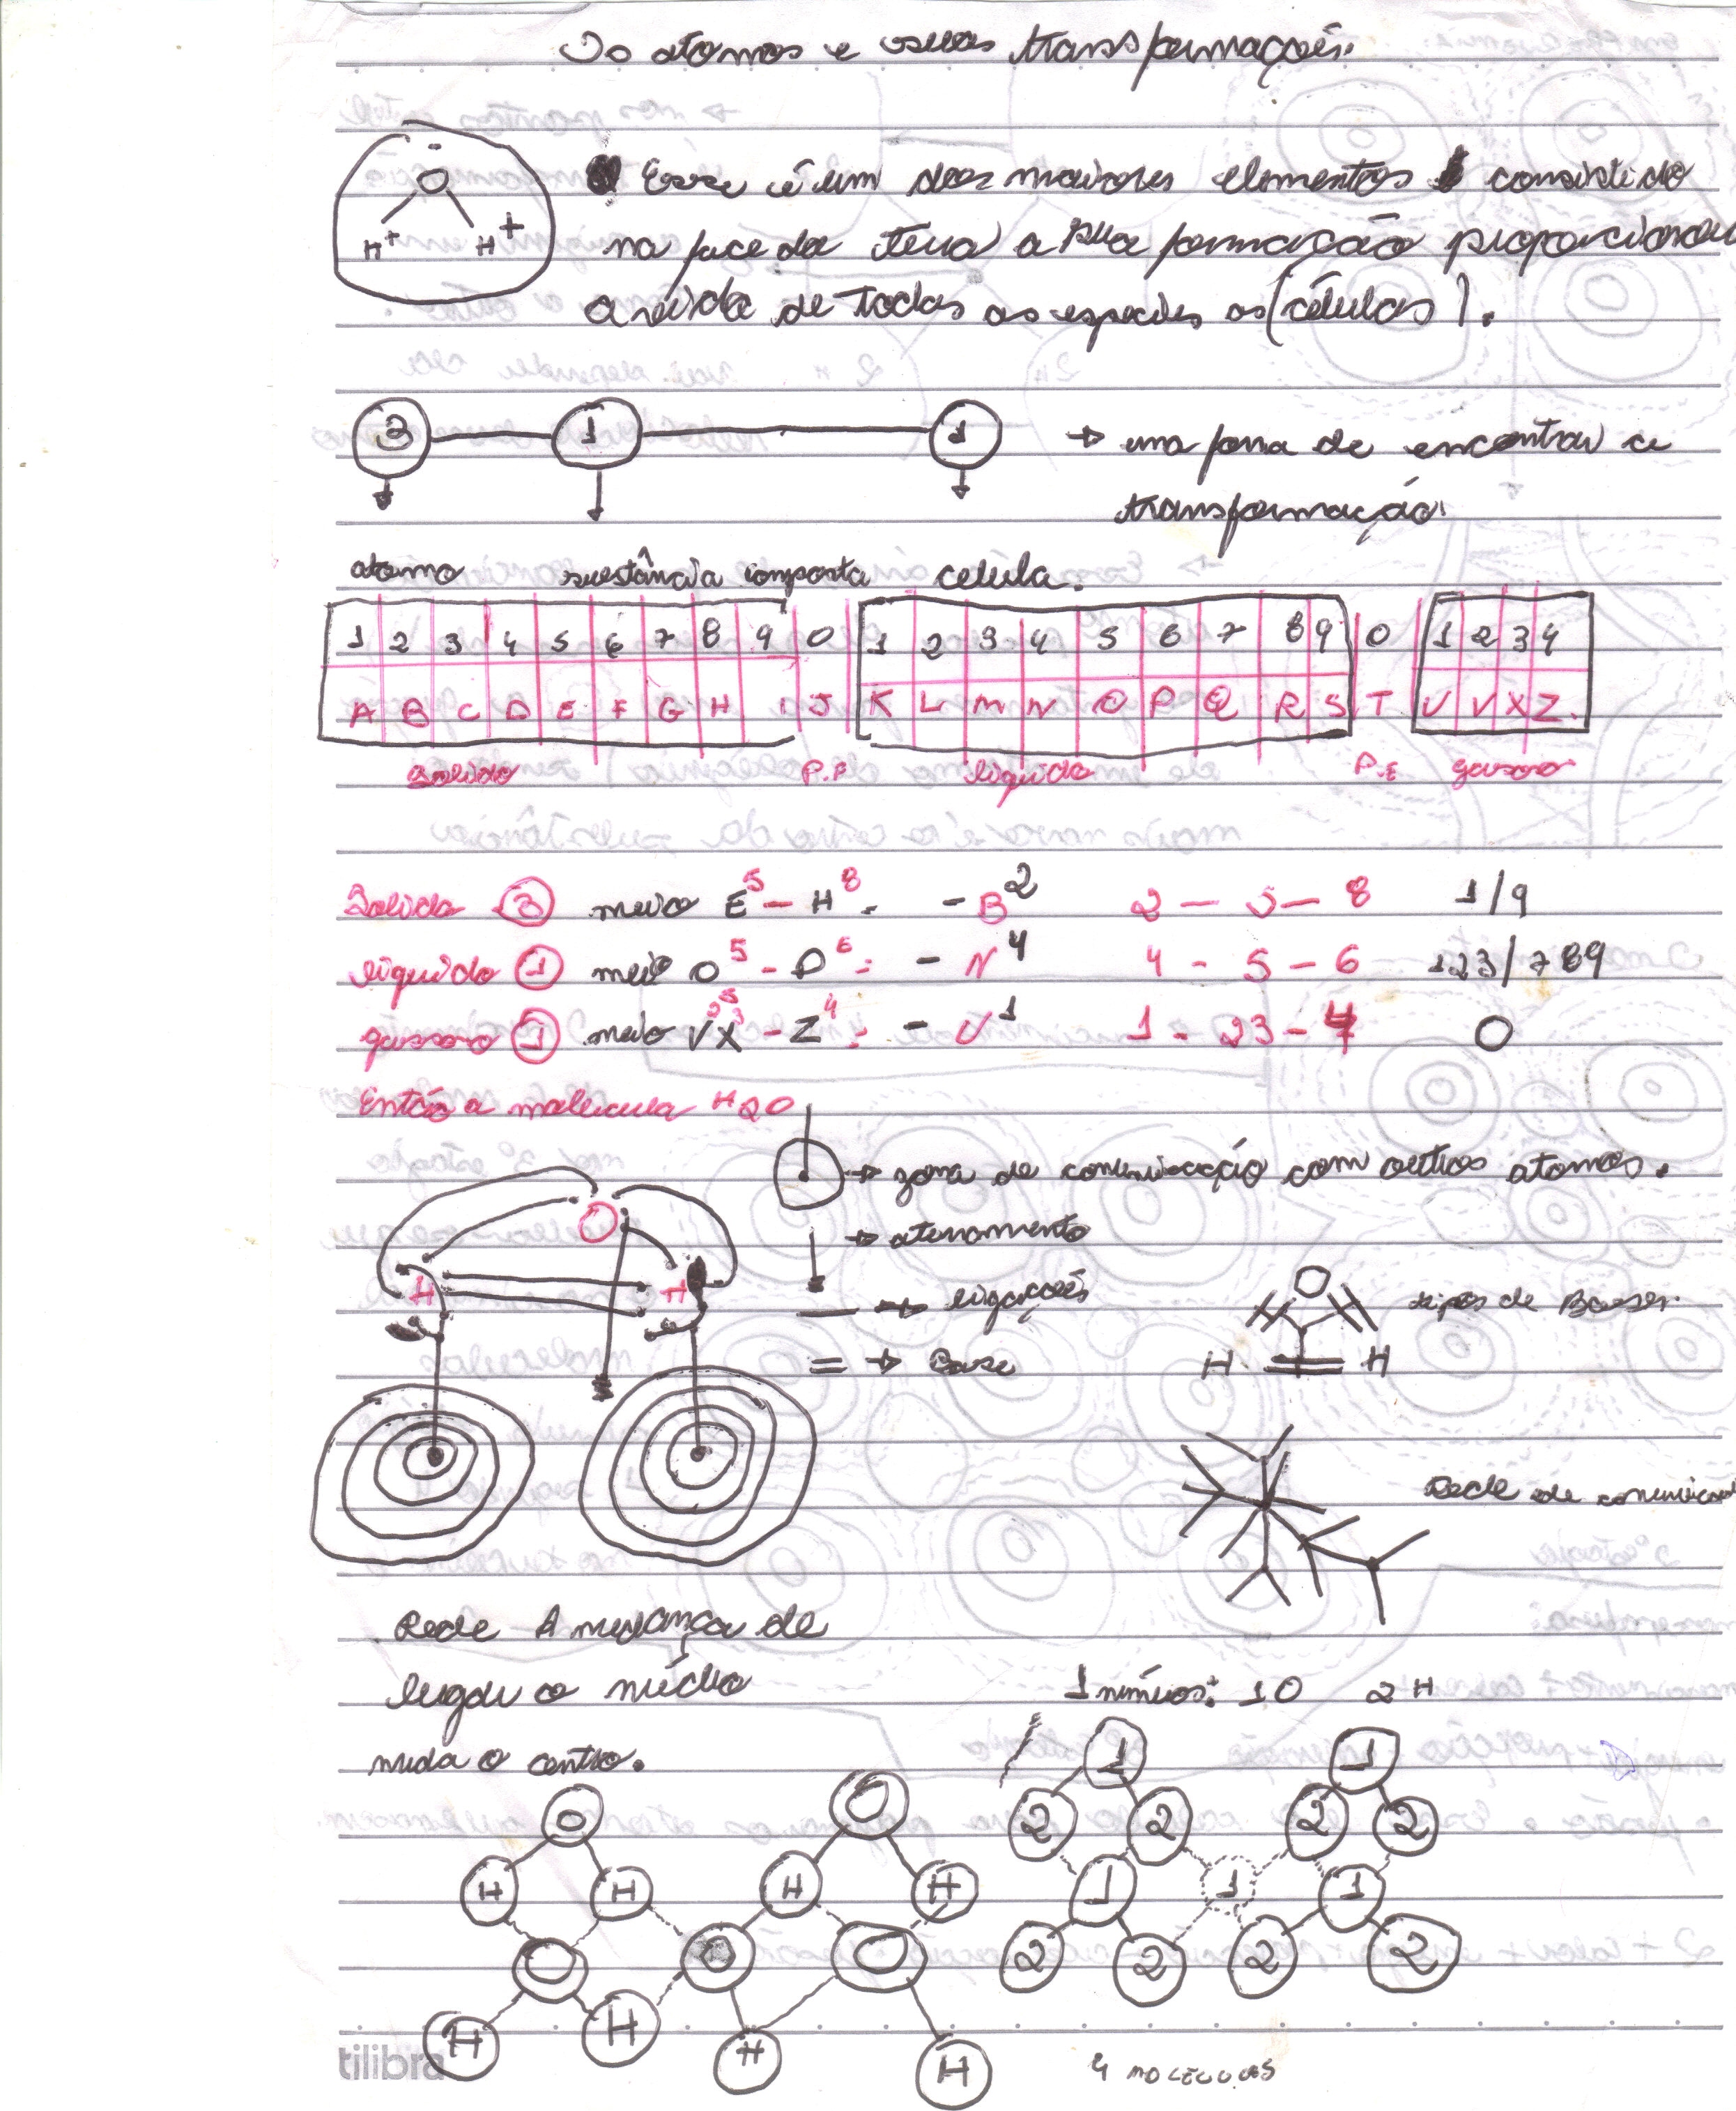 Os atomos e suas transformações.
O
H+ H+
Esse é um dos maiores elementos consistido
na face da terra a sua formação proporcionou
a vida de todas as especies as (células).
3 1 1 → uma forma de encontrar a
transformação
atomo substância composta celula.
1 2 3 4 5 6 7 8 9 0 1 2 3 4 5 6 7 8 9 0 1 2 3 4
A B C D E F G H I J K L M N O P Q R S T U V X Z
Solido P.F liquido P.E gasoso
Solido 3 meio E5 - H8 - B2 2 - 5 - 8 1/9
liquido 1 meio O5 - P6 - N4 4 - 5 - 6 123/789
gasoso 1 meio VX23 - Z4 - U1 1 - 23 - 4 0
Então a molecula H2O
→ zona de comunicação com outros atomos.
O
→ aterramento
H H
→ ligações
O
H H tipos de Bases.
= → Base
H H
Rede de comunicaç
Rede A mudança de
lugar o núcleo
muda o centro.
1 números: 1O 2H
O O 1 1
H H H H 2 2 2 2
O O O 1 1 1
H H H H 2 2 2 2
4 MOLECULAS
tilibra